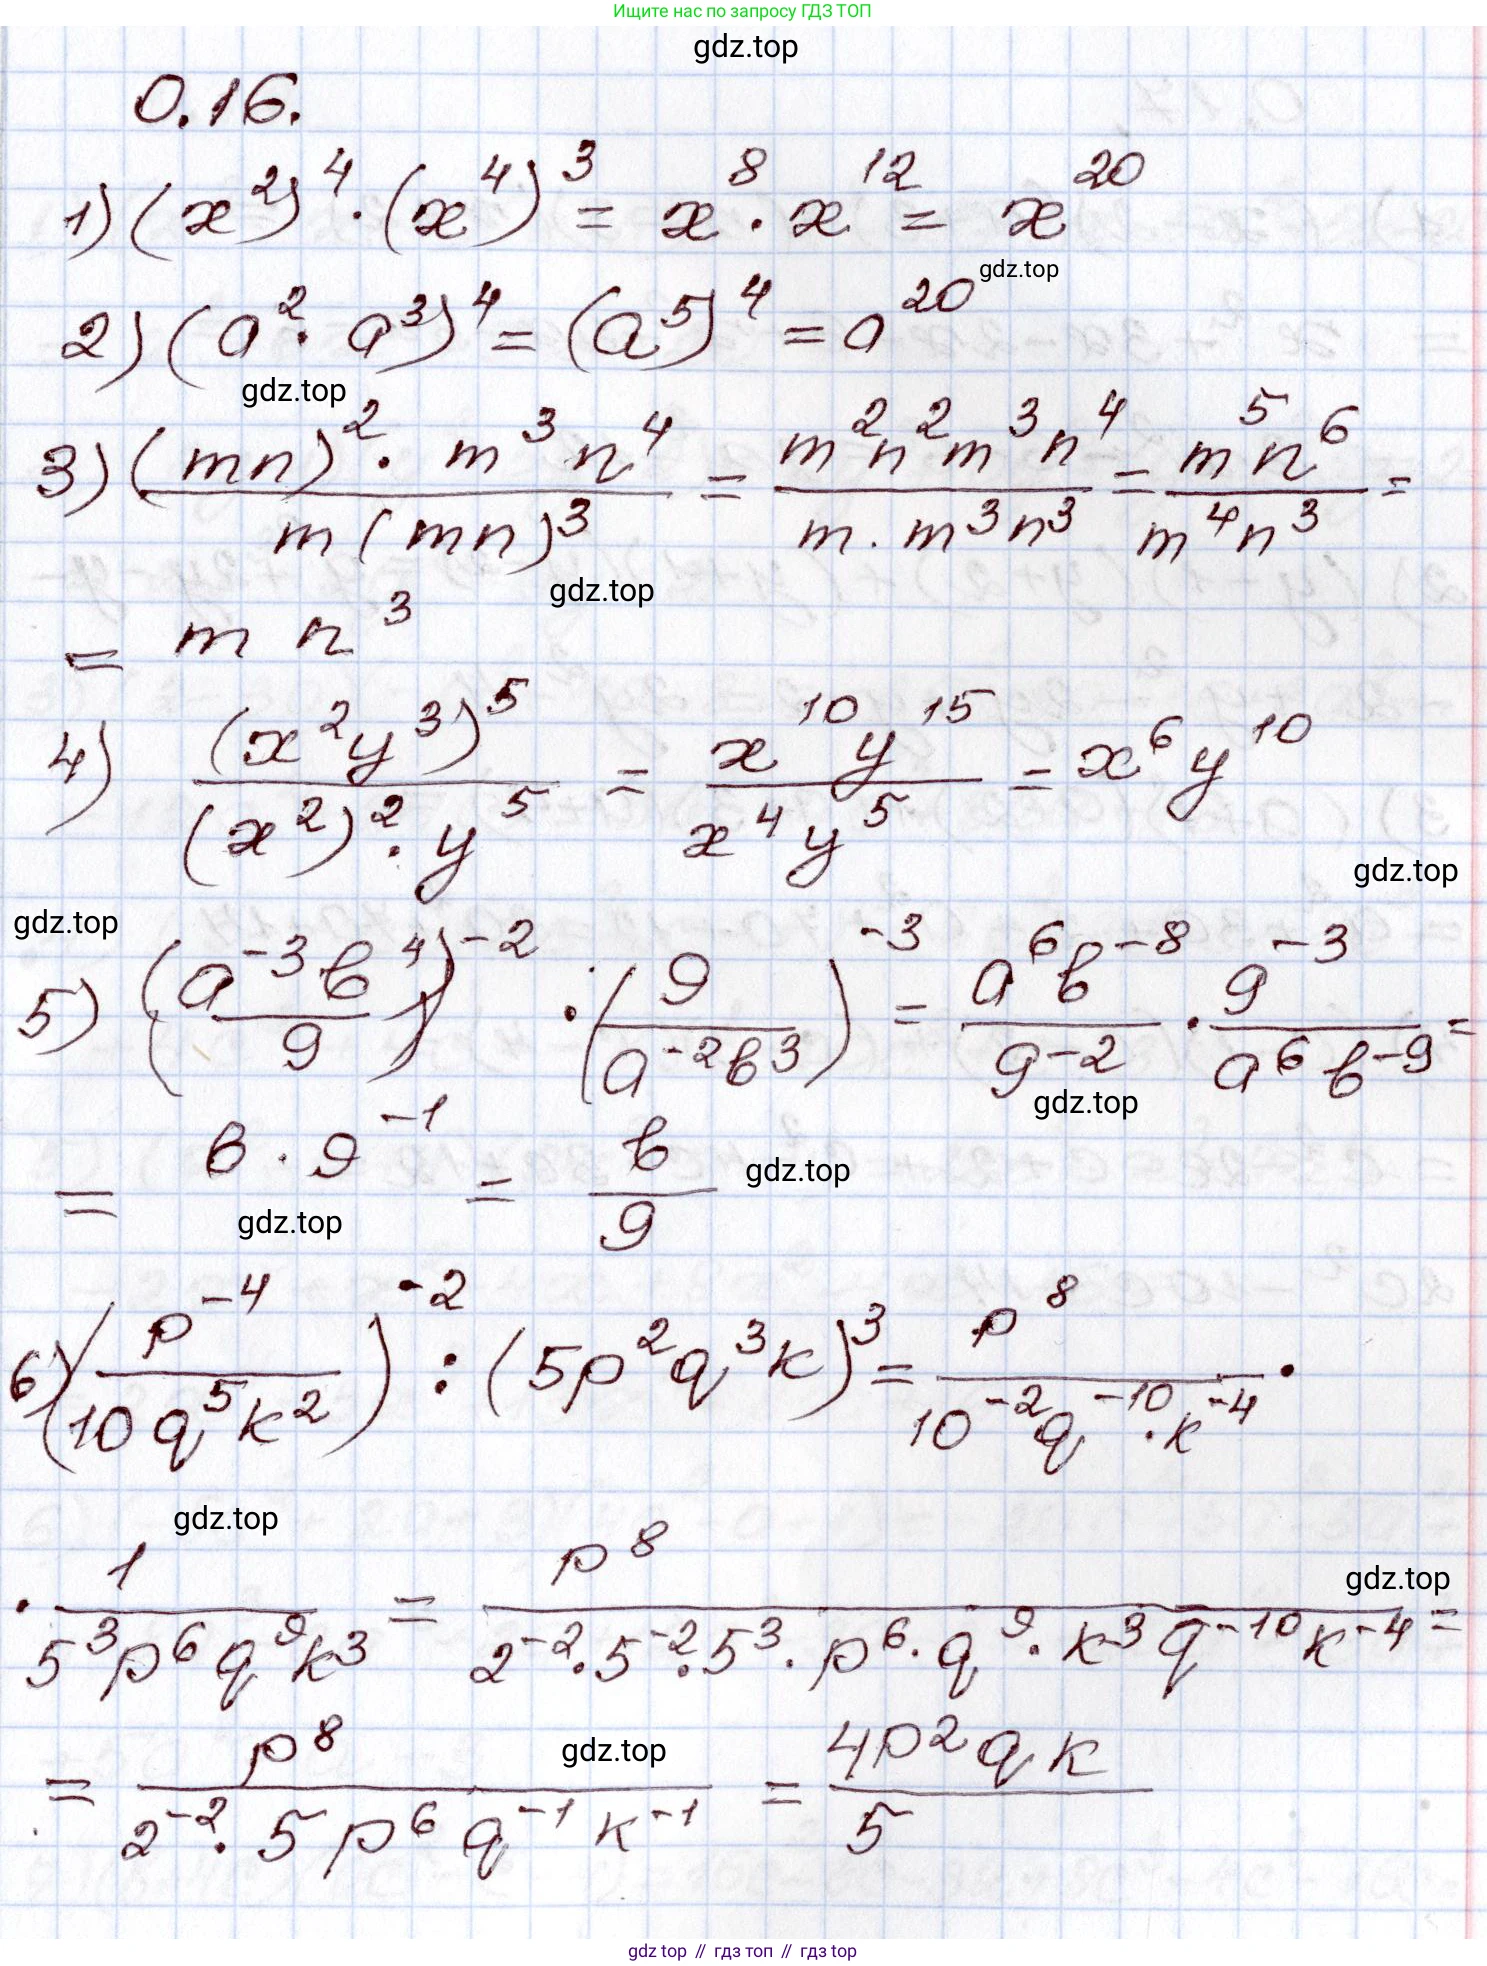 Ищите нас по запросу ГДЗ ТОП
gdz.top
0.16.
1) (x²)⁴ · (x⁴)³ = x⁸ · x¹² = x²⁰
gdz.top
2) (a² · a³)⁴ = (a⁵)⁴ = a²⁰
gdz.top
3) (mn)² · m³n⁴ / m(mn)³ = m²n²m³n⁴ / m·m³n³ = m⁵n⁶ / m⁴n³ =
gdz.top
= m n³
4) (x²y³)⁵ / (x²)²·y⁵ = x¹⁰y¹⁵ / x⁴y⁵ = x⁶y¹⁰
gdz.top
gdz.top
5) (a⁻³b⁴ / 9)⁻² · (9 / a⁻²b³)⁻³ = a⁶b⁻⁸ / 9⁻² · 9⁻³ / a⁶b⁻⁹ =
gdz.top
= b · 9⁻¹ = b / 9
gdz.top
gdz.top
6) (p⁻⁴ / 10q⁵k²)⁻² : (5p²q³k)³ = p⁸ / 10⁻²q⁻¹⁰·k⁻⁴ ·
gdz.top
· 1 / 5³p⁶q⁹k³ = p⁸ / 2⁻²·5⁻²·5³·p⁶·q⁹·k³q⁻¹⁰k⁻⁴ =
gdz.top
= p⁸ / 2⁻²·5p⁶q⁻¹k⁻¹ = 4p²qk / 5
gdz.top
gdz top // гдз топ // гдз top